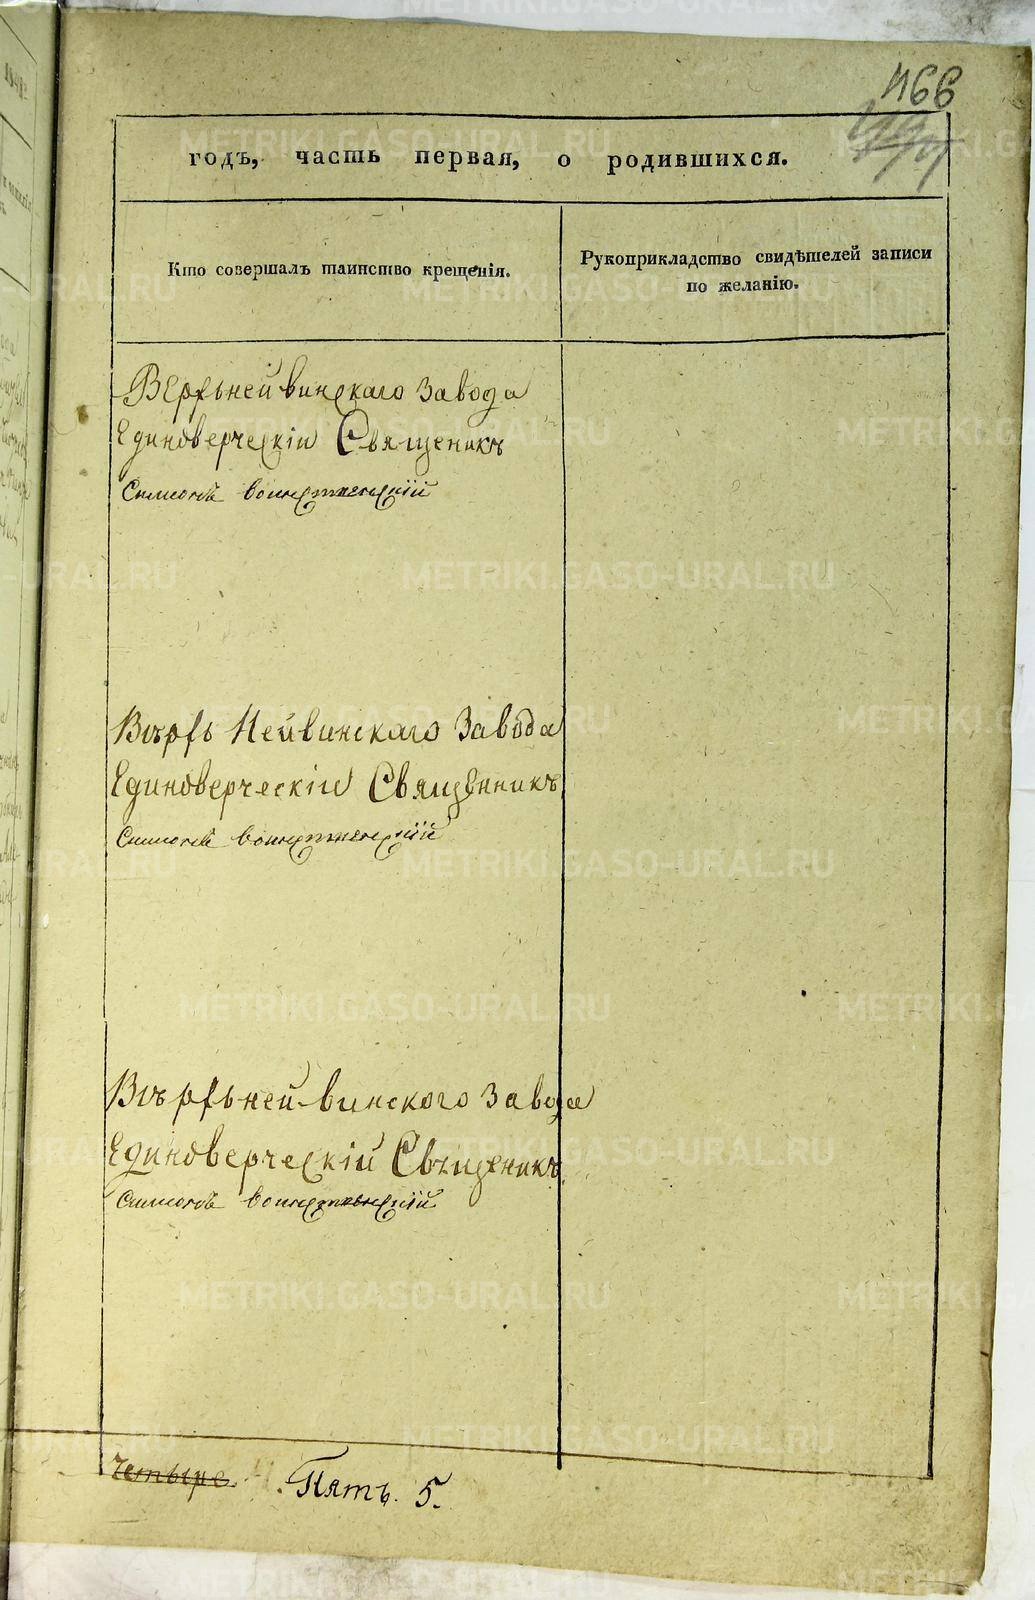 466
годъ, часть первая, о родившихся.
Кто совершалъ таинство крещенія.
Рукоприкладство свидѣтелей записи
по желанію.
Верхьнейвинскаго Завода
Единоверческіи Священикъ
Симеонъ
Върхь Нейвинскаго Завода
Единоверческіи Священникъ
Симеонъ
Върхьней-винского Завода
Единоверческій Свъщеникъ
Симеонъ
Четыре. Пять. 5.
METRIKI.GASO-URAL.RU